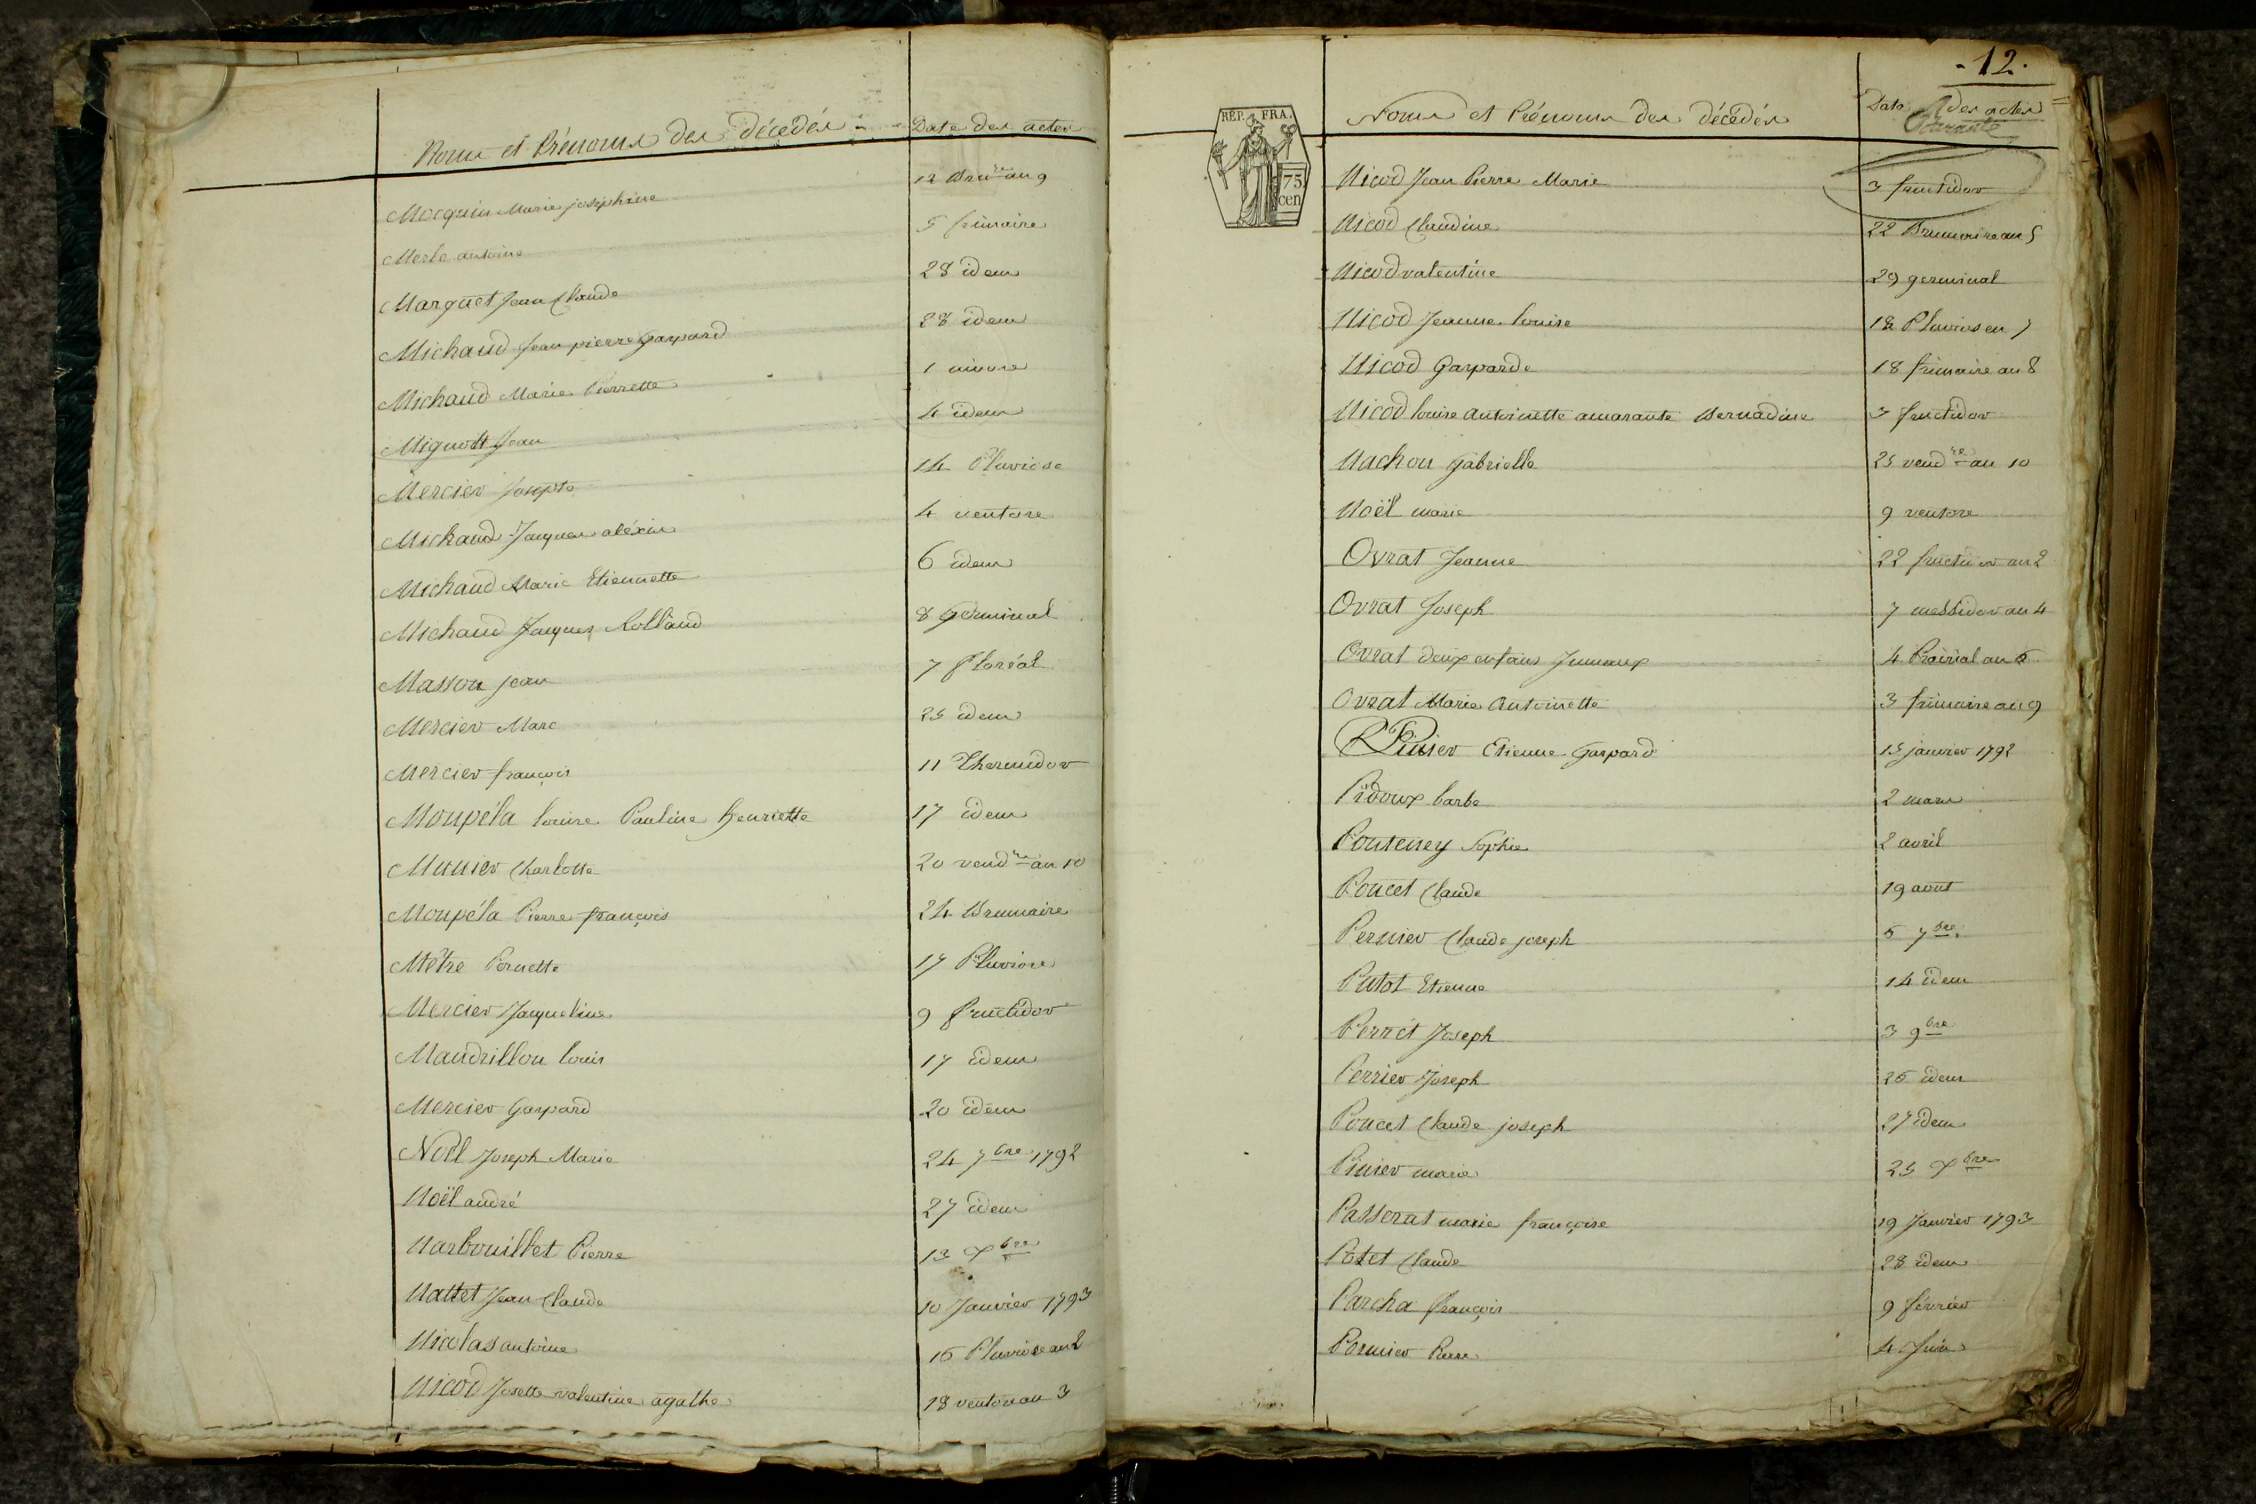 Noms et Prénoms des décédés Date des actes
Mocquin Marie josephine 12 Bru.re an 9
Merle antoine 5 frimaire
Marguet Jean Claude 28 idem
Michaud Jean pierre Gaspard 28 idem
Michaud Marie Pierrette 1 nivose
Mignott Jean 4 idem
Mercier Joseph 14 Pluviose
Michaud Jacques aléxis 4 ventose
Michaud Marie Etiennette 6 idem
Michaud Jacques Rolland 8 Germinal
Masson jean 7 floréal
Mercier Marc 25 idem
Mercier françois 11 Thermidor
Moupéla louise Pauline henriette 17 idem
Munier Charlotte 20 vend.re an 10
Moupéla Pierre françois 24 Brumaire
Mêtre Pernette 17 Pluviose
Mercier Jacqueline 9 fructidor
Maudrillon louis 17 idem
Mercier Gaspard 20 idem
Noël Joseph Marie 24 7bre 1792
Noël andré 27 idem
Narbouillet Pierre 13 Xbre
Nattet Jean Claude 10 Janvier 1793
Nicolas antoine 16 Pluviose an 2
Nicod Josette valentine agathe 18 ventose an 3
- 12 -
RÉP. FRA.
75 cen
Noms et Prénoms des décédés Date des actes
Nicod Jean Pierre Marie 3 fructidor
Nicod Claudine 22 Brumaire an 5
Nicod valentine 29 germinal
Nicod Jeanne louise 18 Pluviose an 7
Nicod Gasparde 18 frimaire an 8
Nicod louise Antoinette amarante Bernadine 3 fructidor
Nachon Gabrielle 25 vend.re an 10
Noël marie 9 ventose
Ovrat Jeanne 22 fructidor an 2
Ovrat Joseph 7 messidor an 4
Ovrat deux enfans Jumeaux 4 Prairial an 6
Ovrat Marie Antoinette 3 frimaire an 9
Pinier Etienne Gaspard 15 janvier 1792
Pidoux barbe 2 mars
Pouteney Sophie 2 avril
Poncet Claude 19 aout
Pernier Claude joseph 5 7bre
Patot Etienne 14 idem
Perret Joseph 3 9bre
Perrier Joseph 26 idem
Poncet Claude joseph 27 idem
Pinier marie 25 Xbre
Passerat marie françoise 19 Janvier 1793
Potet Claude 28 idem
Parcha françois 9 février
Pornier Pierre 4 Juin